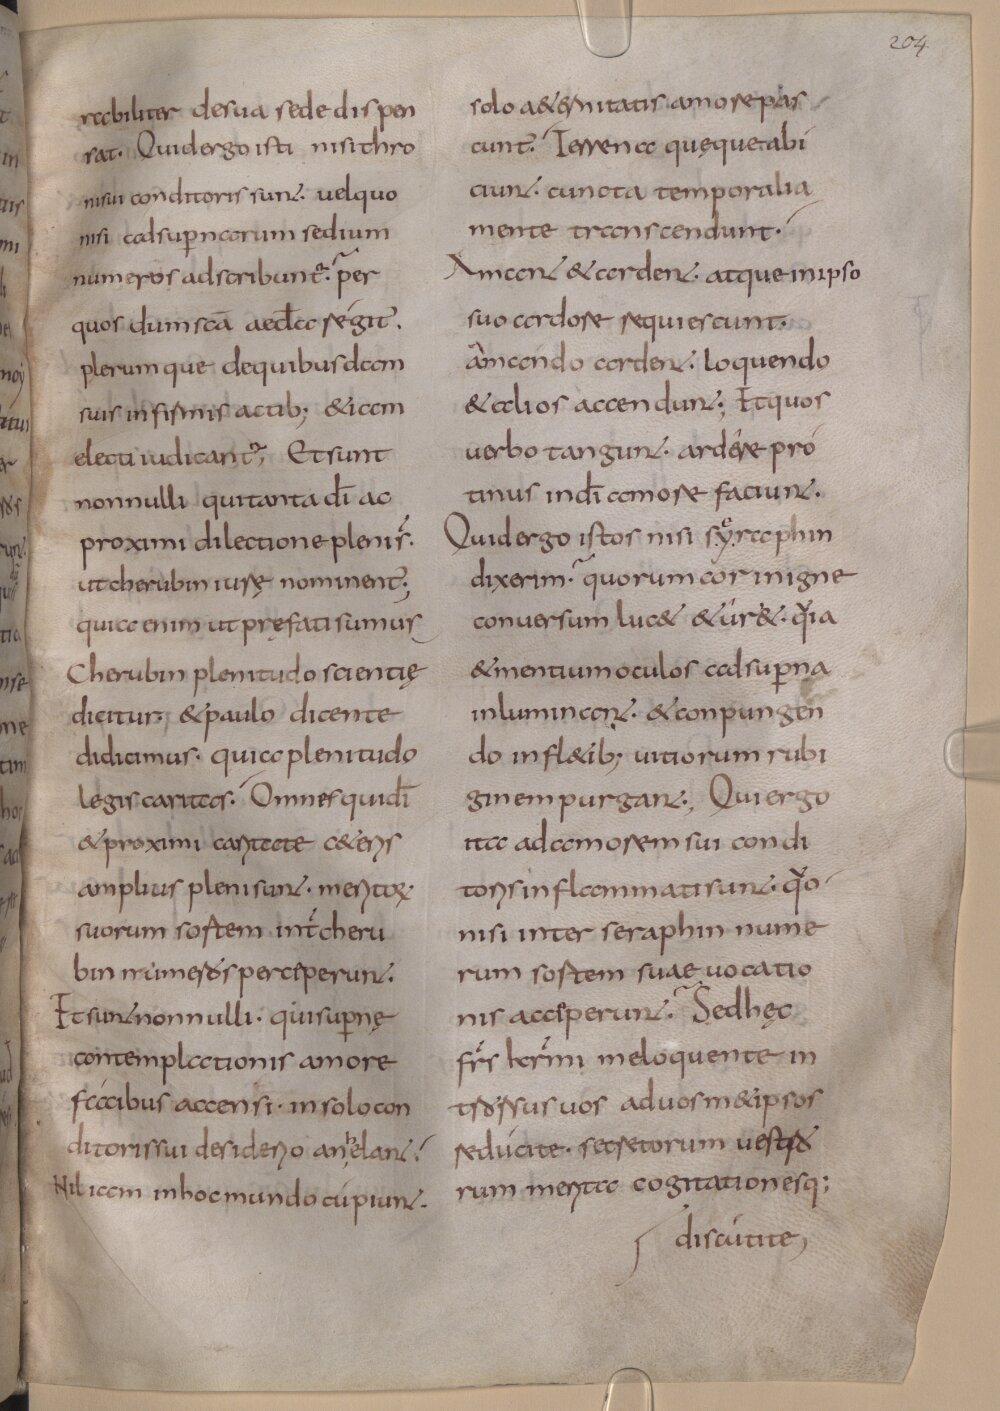 204
rabiliter desua sede dispen
sat. Quid ergo isti nisi thro
ni sui conditoris sunt. uel quo
nisi ad sup̄narum sedium
numeros adscribunt᷑. per
quos dum sc̄a aeccl̄a regit᷑.
plerumque de quibusdam
suis infirmis actib; & iam
electi iudicant᷑; Et sunt
nonnulli qui tanta dī ac
proximi dilectione pleni s̄.
ut cherubin iure nominent᷑;
quia enim ut pręfati sumus
Cherubin plenitudo scientię
dicitur. & paulo dicente
didicimus. quia plenitudo
legis caritas. Omnes qui dī
& proximi caritate c&eris
amplius pleni sunt. meritoꝝ
suorum sortem int̄ cheru
bin numeros perceperunt.
Et sunt nonnulli. qui sup̄nę
contemplationis amore
facibus accensi. in solo con
ditoris sui desiderio anhelant.
Nil iam in hoc mundo cupiunt.
solo a&ernitatis amore pas
cunt᷑. Terrena quęque abi
ciunt. cuncta temporalia
mente transcendunt.
Amant & ardent. atque in ipso
suo ardore requiescunt.
amando ardent. loquendo
& alios accendunt; Et quos
uerbo tangunt. ardere pro
tinus in dī amore faciunt.
Quid ergo istos nisi syraphin
dixerim. quorum cor in igne
conversum luc& & ur&. quia
& mentium oculos ad sup̄na
inluminant. & conpungen
do in fl&ib; uitiorum rubi
ginem purgant; Qui ergo
ita ad amorem sui condi
toris inflammati sunt. quo
nisi inter seraphin nume
rum sortem suae uocatio
nis acceperunt. Sed hęc
fr̄s kar̄mi me loquente in
trorsus uos ad uosm&ipsos
reducite. secretorum uestro
rum merita cogitationesq;
discutite;